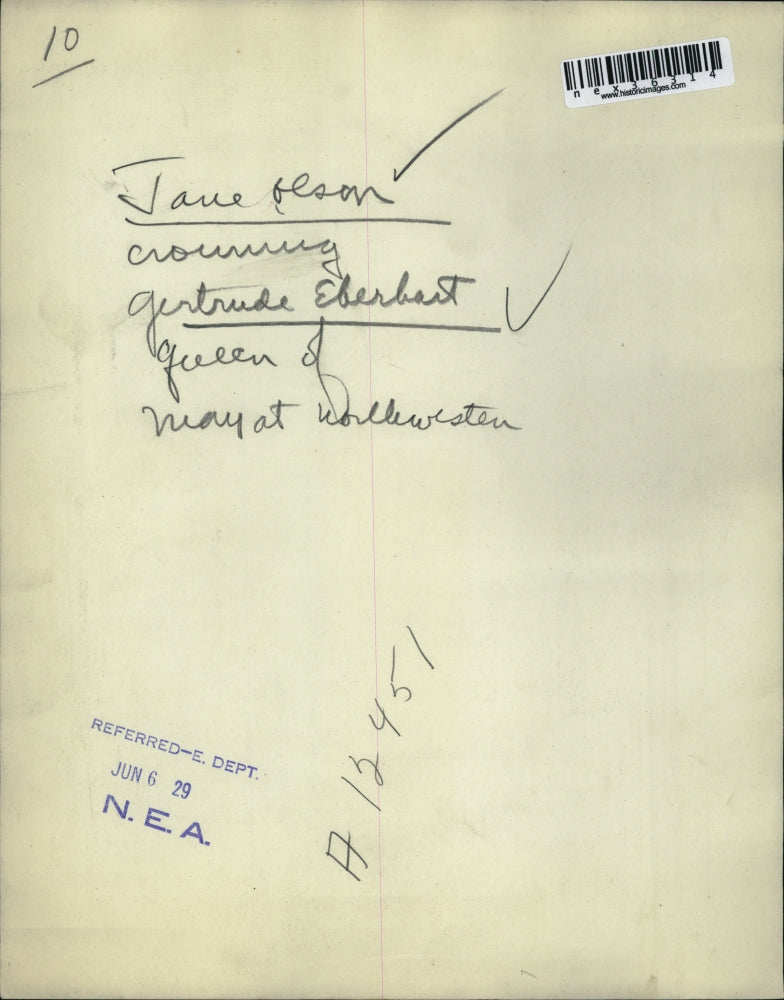 10
nex36314
www.historicimages.com
Jane Olson
crowning
Gertrude Eberhart
Queen of
May at Northwestern
A 12451
REFERRED—E. DEPT.
JUN 6 29
N. E. A.